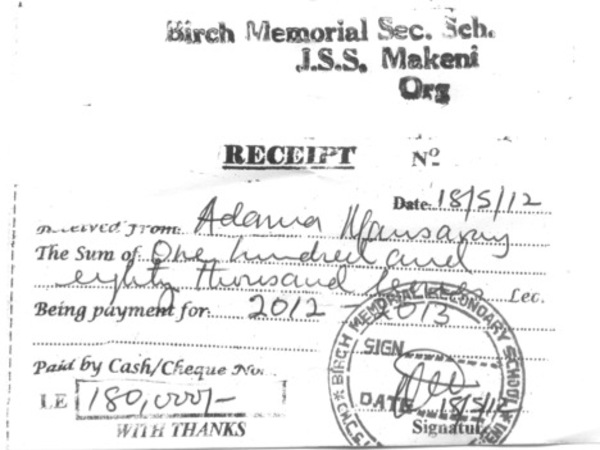 Birch Memorial Sec. Sch.
J.S.S. Makeni
Org
RECEIPT Nº
Date: 18/5/12
Received From: Adama Mansaray
The Sum of One hundred and
eighty thousand Leones Lec.
Being payment for: 2012 – 2013
Paid by Cash/Cheque No.
LE 180,000/-
WITH THANKS
BIRCH MEMORIAL SECONDARY SCHOOL
SIGN
DATE 18/5/12
Signature